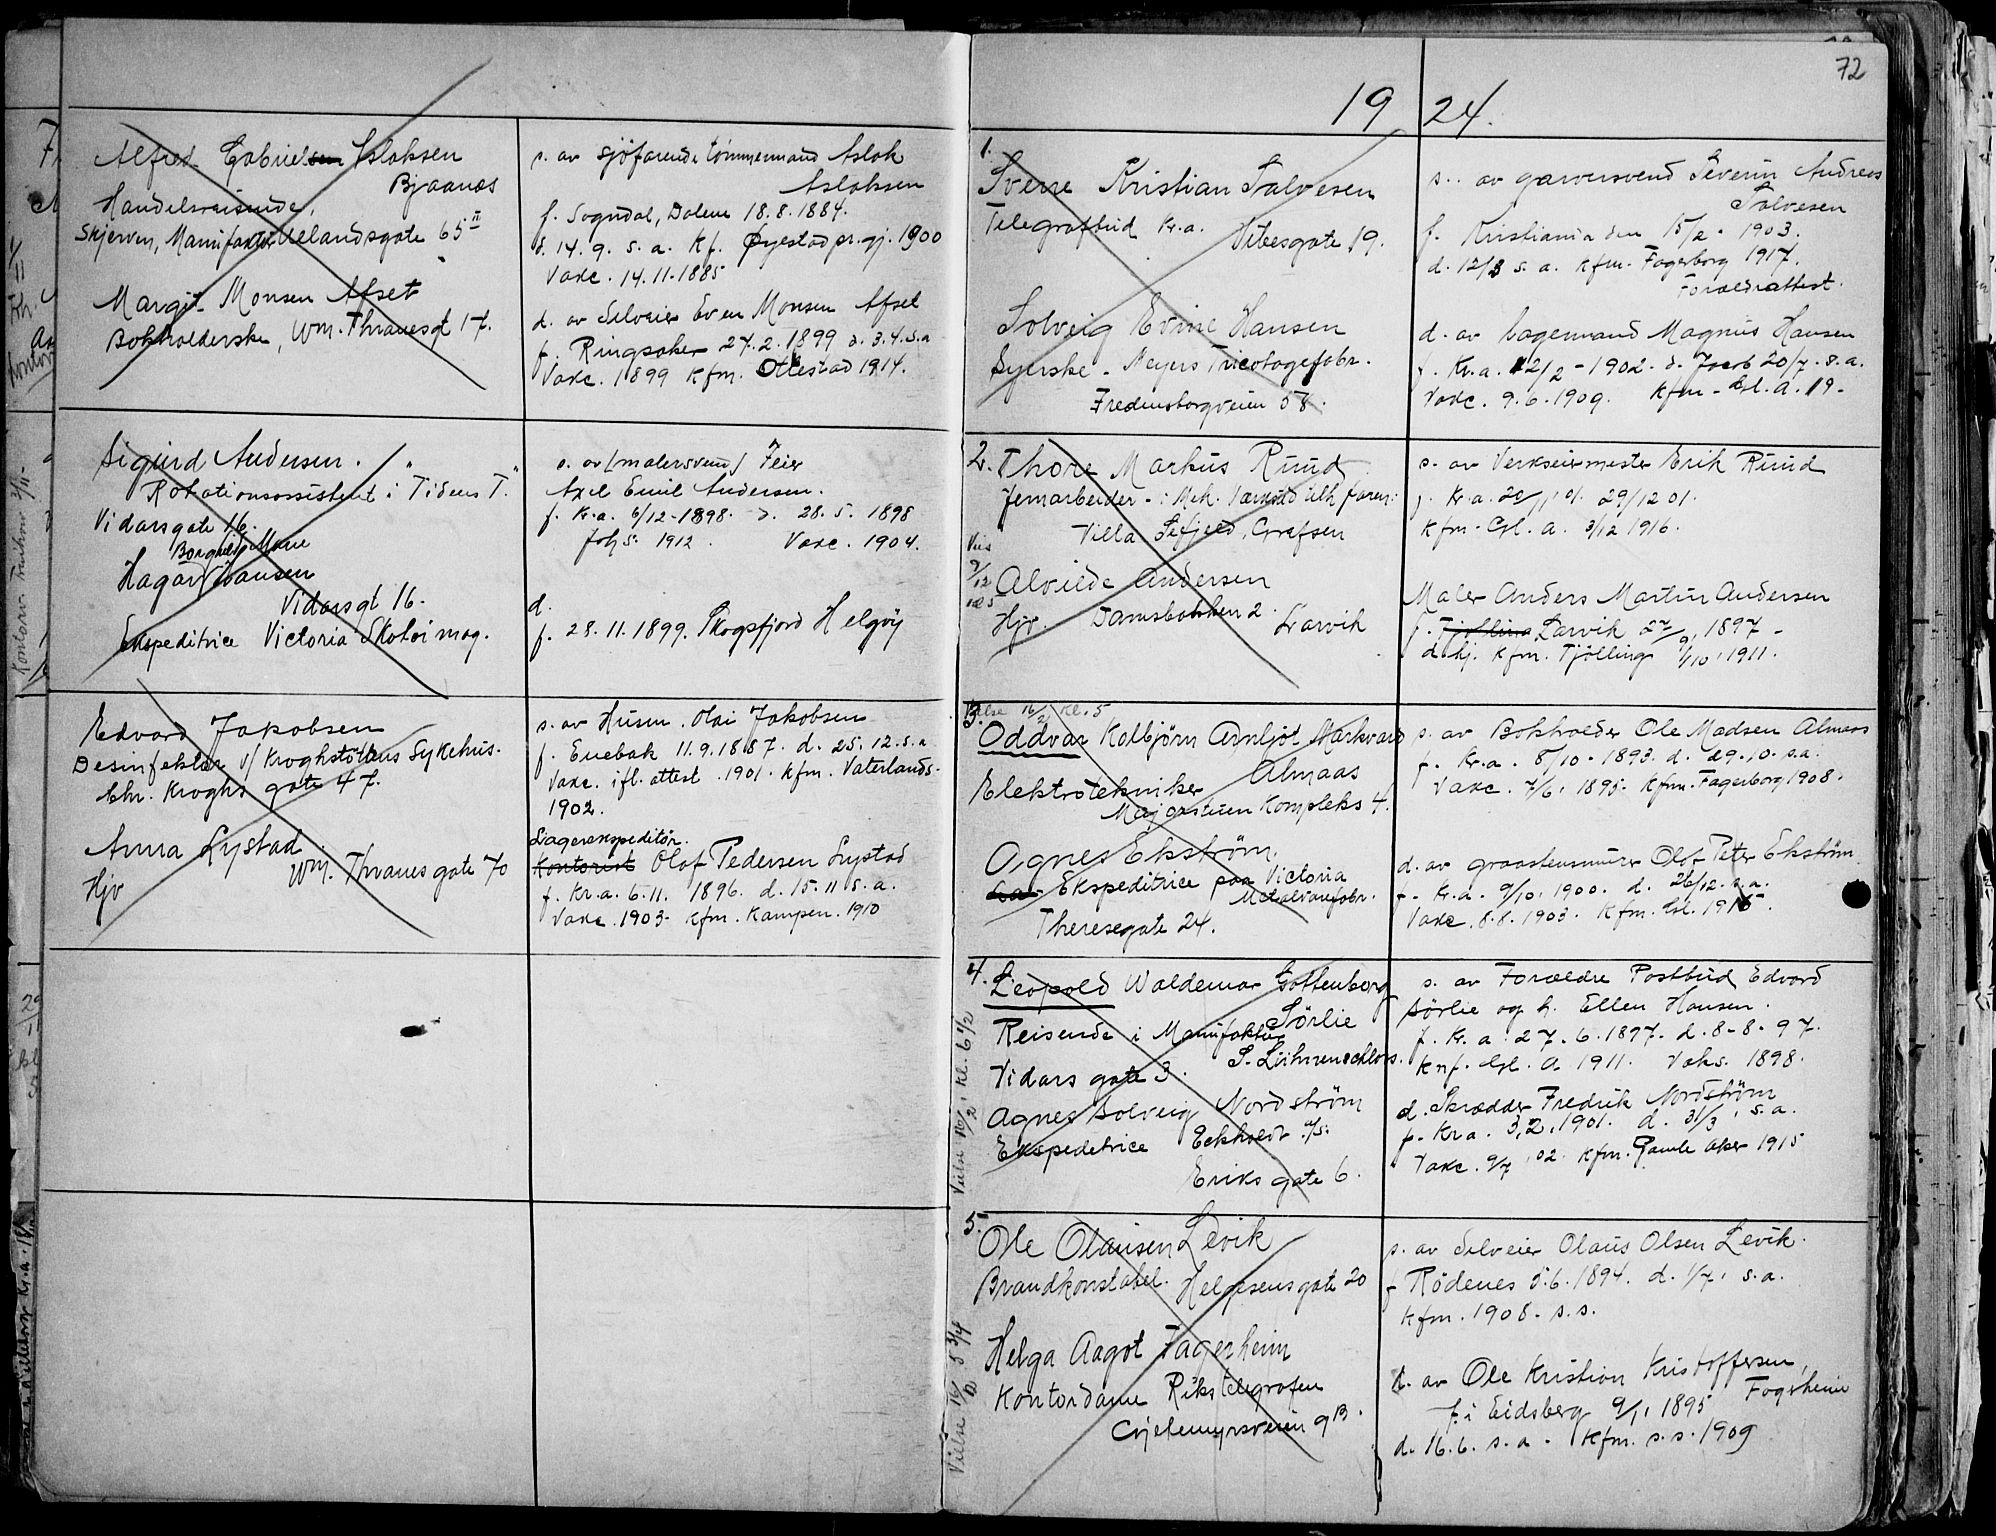 Alfred Gabrielsen Asloksen
Bjaanæs
Handelsreisende,
Skjerven, Manufaktur Uelandsgate 65 II
Margit Monsen Afset
Bokholderske, Wm. Thranesgt 17.
s. av sjöfarende tömmermand Aslok
Asloksen
f. Sogndal, Dalene 18.8.1884.
d. 14.9. s.a. Kf. Øyestad pr.gj. 1900
Vakc. 14.11.1885
d. av Selveier Even Monsen Afset
f. Ringsaker 27.2.1899 d. 3.4.s.a
Vakc. 1899 Kfm. Ottestad 1914.
Sigurd Andersen.
Rotationsassistent i "Tidens T."
Vidarsgate 16.
Borghild Marie
Hagar Johansen
Vidarsgt 16.
Ekspeditrice Victoria Skotöimag.
s. av (malersvend) Feier
Axel Emil Andersen.
f. Kr.a. 6/12-1898. d. 28.5.1898
Joh s. 1912. Vakc. 1904.
d.
f. 28.11.1899. Skogsfjord Helgöy
Edvard Jakobsen
Desinfektör v/ Kroghstöttens Sykehus.
Chr. Kroghs gate 47.
Anna Lystad
Wm. Thranes gate 70
Hjv
s. av Husm. Olai Jakobsen
f. Enebak 11.9.1887. d. 25.12.s.a
Vakc. ifl. attest 1901. Kfm. Vaterlands.
1902.
Lagerekspeditör.
Kontorist Olof Pedersen Lystad
f. Kr.a. 6.11. 1896. d. 15.11 s.a.
Vakc. 1903. Kfm. Kampen. 1910
72
19 24.
1.
Sverre Kristian Salvesen
Telegrafbud Kr.a.
Vibesgate 19.
Solveig Evine Hansen
Syerske - Meyers Tricotagefabr.
Fredensborgveien 58.
s. av garversvend Severin Andreas
Salvesen
f. Kristiania den 15/2 - 1903.
d. 12/3 s.a. Kfm. Fagerborg 1917.
Forældrattest.
d. av Lagermand Magnus Hansen
f. Kr.a. 12/2 - 1902. d. Jacob 20/7. s.a.
Vakc. 9.6.1909. Kfm - Gl. A. 19-
2. Thore Markus Ruud
Jernarbeider -
Villa Sefjeld, Grefsen
Viis
9/12
kl 5
Alvilde Andersen
Hjv. Damsbakken 2. Larvik
s. av Verkseiermester Erik Ruud
f. Kr.a. 29/12 01.
Kfm. Gl. A. 3/12 1916.
Maler Anders Martin Andersen
f. Tjölling Larvik 27/9, 1897 -
d. hj. Kfm. Tjölling 1/10, 1911.
3.
Vielse 16/2 Kl. 5
Oddvar Kolbjörn Arnljot Markvard
Almaas
Elektrotekniker
Majorstuen Kompleks 4.
Agnes Ekström
Ekspeditrice paa Victoria
Metalvarefabr.
Theresegate 24.
s. av Bokholder Ole Madsen Almaas
f. Kr.a. 8/10 - 1893. d. 29.10. s.a.
Vakc. 7/6, 1895. Kfm. Fagerborg 1908.
d. av graastensmurer Olof Peter Ekström
f. Kr.a. 9/10. 1900. d. 26/12. s.a.
Vakc. 8.8.1903. Kfm. Gl. 1915.
4.
Leopold Waldemar Gottenborg
Sörlie
Reisende i Manufaktur
Vidars gate 3.
Agnes Solveig Nordström
Ekspeditrice Eckholdt A/S.
Eriks gate 6.
Vielse 16/2, Kl. 6 1/2
s. av Forældre Postbud Edvard
Sörlie og h. Ellen Hansen.
f. Kr.a. 27.6.1897. d. 8-8-97.
Knf. Gl. A. 1911. Vaks. 1898.
d. Skrædder Fredrik Nordström
f. Kr a. 3.2.1901. d. 31/3, s.a.
Vakc. 9/7, 02. Kfm. Gamle Aker 1915
5.
Ole Olausen Levik
Brandkonstabel. Helgesensgate 20
Helga Aagot Fagerheim
Kontordame Rikstelegrafen
Gjetemyrsveien 9 B.
Vielse 16/2 5 3/4
s. av Selveier Olaus Olsen Levik.
f Rödenes 5.6.1894. d. 1/7, s.a.
Kfm. 1908. s.s.
d. av Ole Kristian Kristoffersen,
Fagerheim
f. i Eidsberg 9/1, 1895
d. 16.6. s.a. Kfm. s.s. 1909